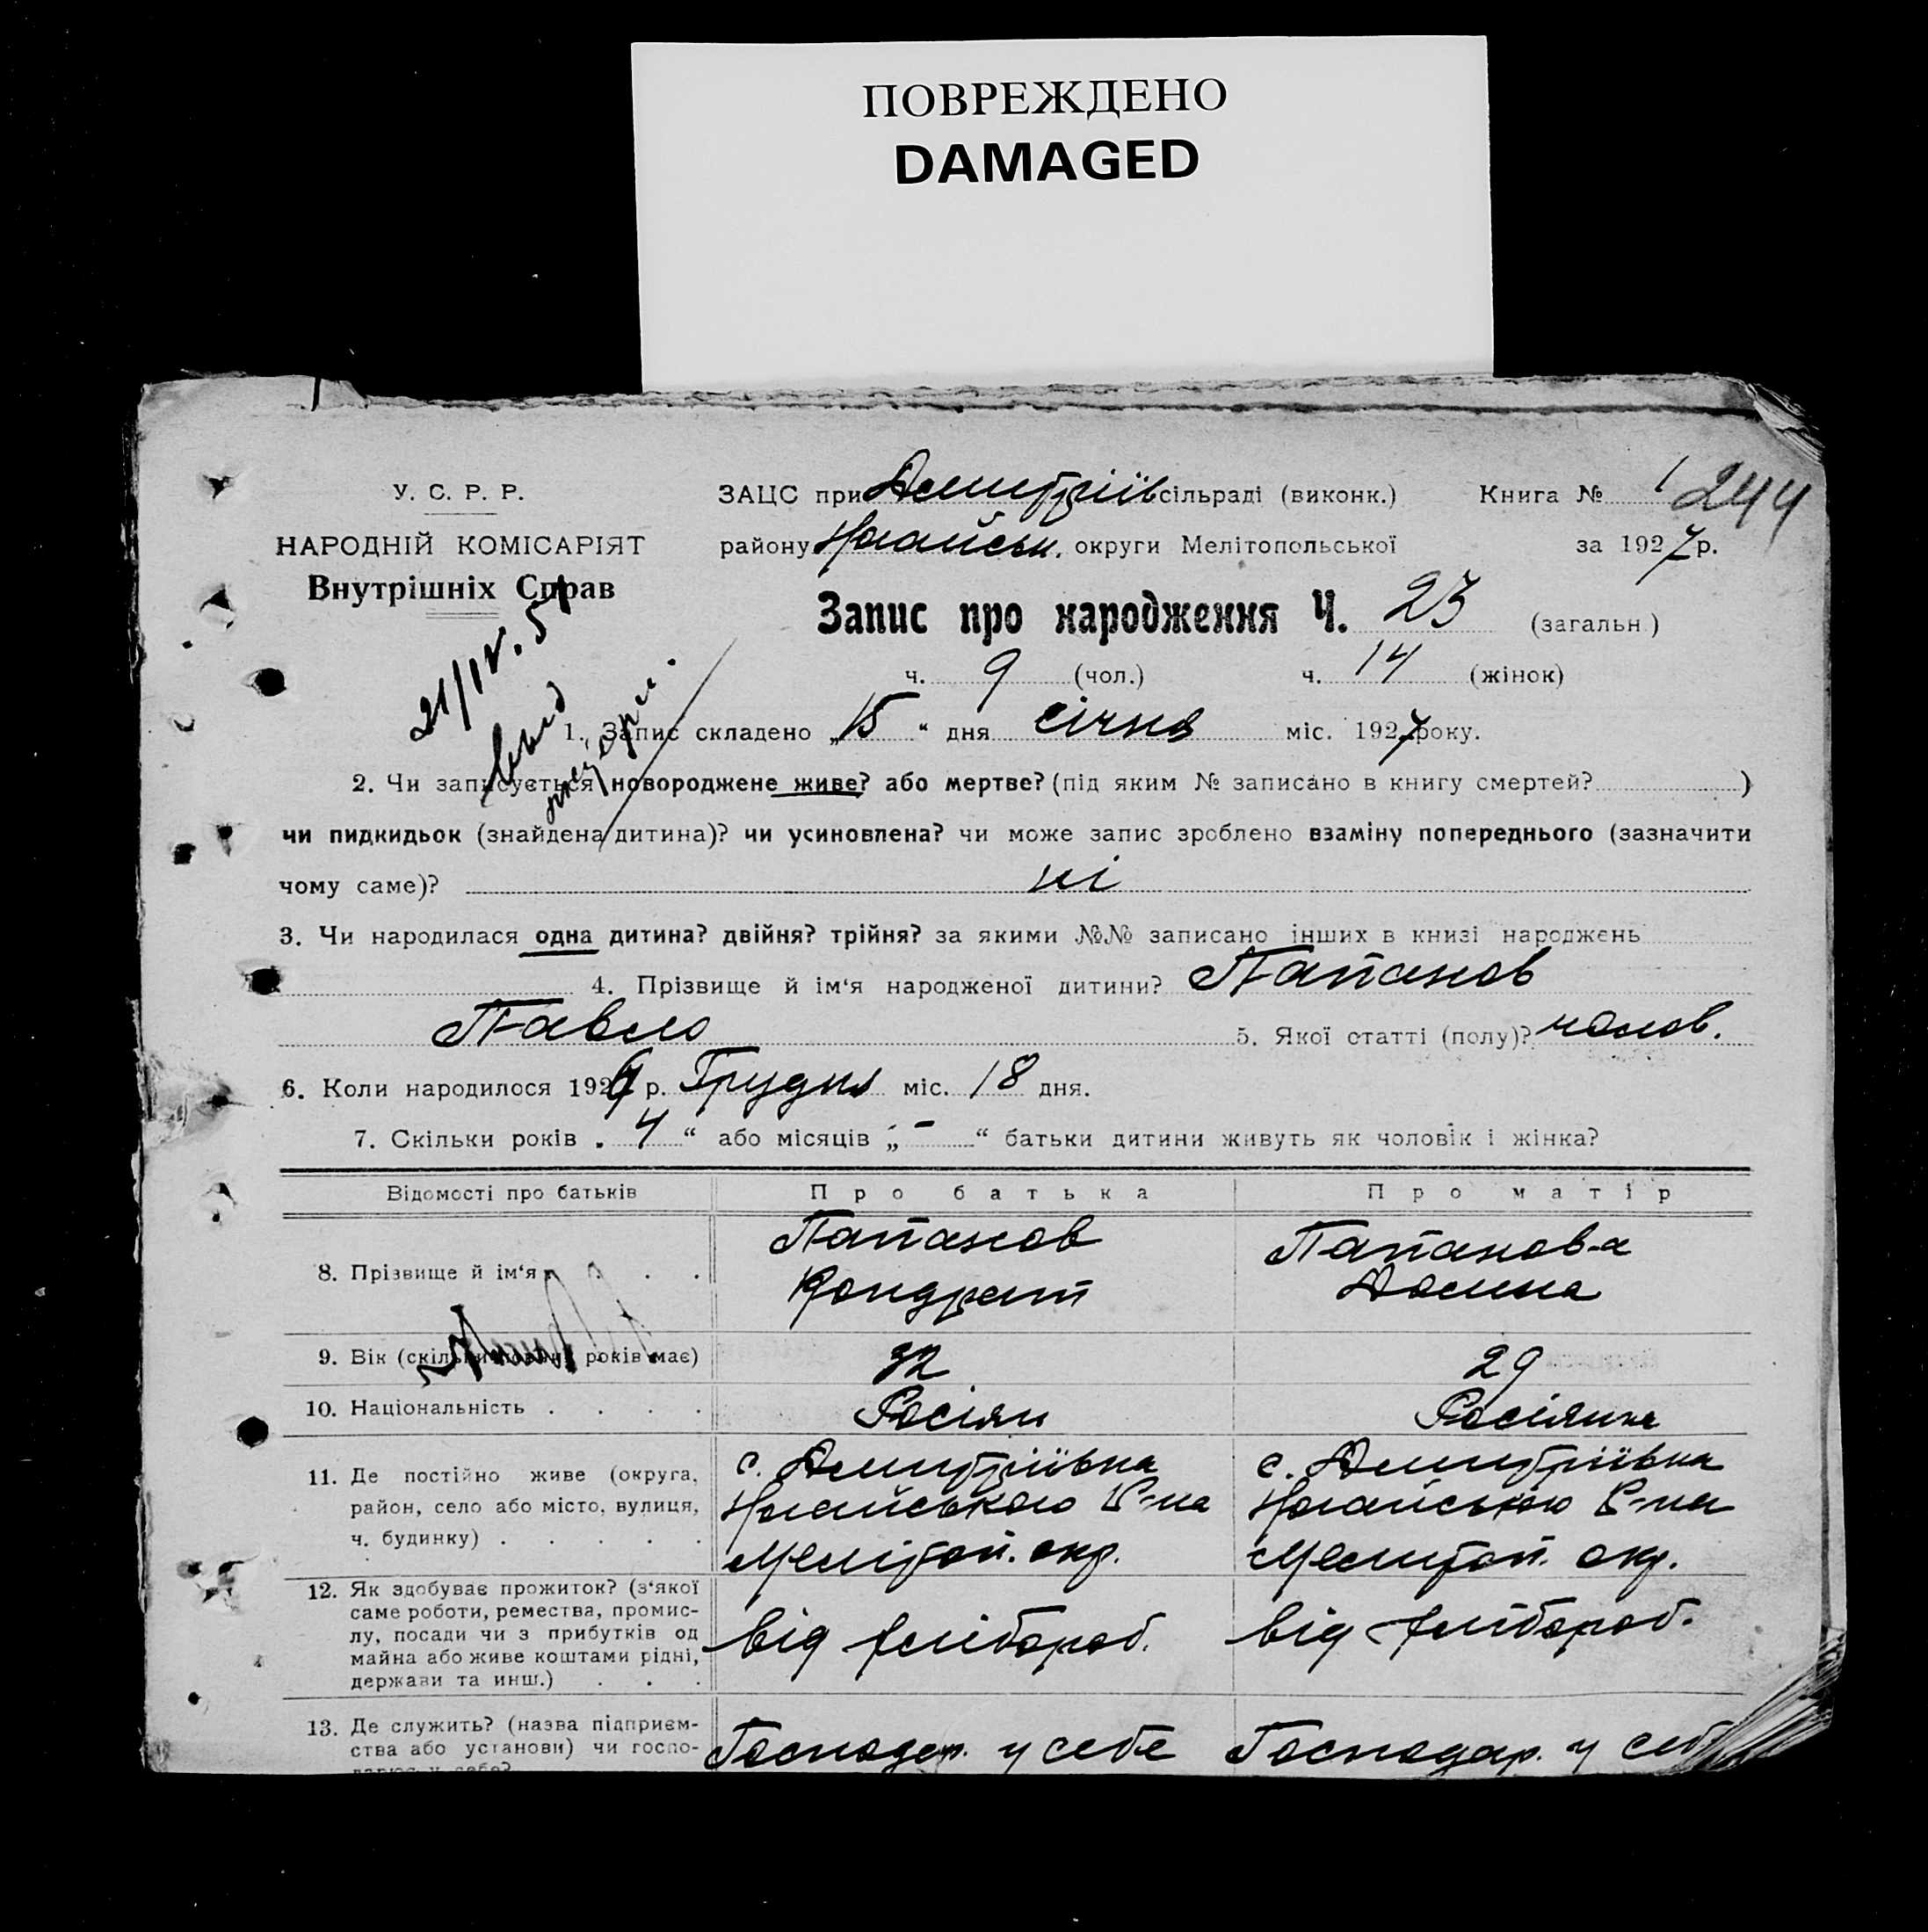 ПОВРЕЖДЕНО
DAMAGED
У. С. Р. Р.
НАРОДНІЙ КОМІСАРІЯТ
Внутрішніх Справ
ЗАЦС при Дмитріїв сільраді (виконк.) Книга № 1 244
району Ногайськ. округи Мелітопольської за 1927 р.
Запис про народження Ч. 23 (загальн.)
ч. 9 (чол.) ч. 14 (жінок)
21/IV.51
1. Запис складено „15“ дня січня міс. 1927 року.
2. Чи записується новороджене живе? або мертве? (під яким № записано в книгу смертей? )
чи пидкидьок (знайдена дитина)? чи усиновлена? чи може запис зроблено взаміну попереднього (зазначити
чому саме)? ні
3. Чи народилася одна дитина? двійня? трійня? за якими №№ записано інших в книзі народжень
4. Прізвище й ім‘я народженої дитини? Папанов
Павло 5. Якої статті (полу)? чолов.
6. Коли народилося 1926 р. Грудня міс. 18 дня.
7. Скільки років „4“ або місяців „-“ батьки дитини живуть як чоловік і жінка?
Відомості про батьків Про батька Про матір
8. Прізвище й ім‘я . . . Папанов Кондрат Папанов-а Домна
9. Вік (скільки повних років має) 32 29
10. Національність . . . . Росіян Росіянка
11. Де постійно живе (округа,
район, село або місто, вулиця,
ч. будинку) . . . . .
с. Дмитріївка
Ногайського Р-на
Мелітоп. окр.
с. Дмитріївка
Ногайського Р-на
Мелитоп. окр.
12. Як здобуває прожиток? (з‘якої
саме роботи, ремества, промис-
лу, посади чи з прибутків од
майна або живе коштами рідні,
держави та инш.) . . .
від хлібороб.
від хлібороб.
13. Де служить? (назва підприєм-
ства або установи) чи госпо-
дарює у себе?
Господар. у себе
Господар. у себ